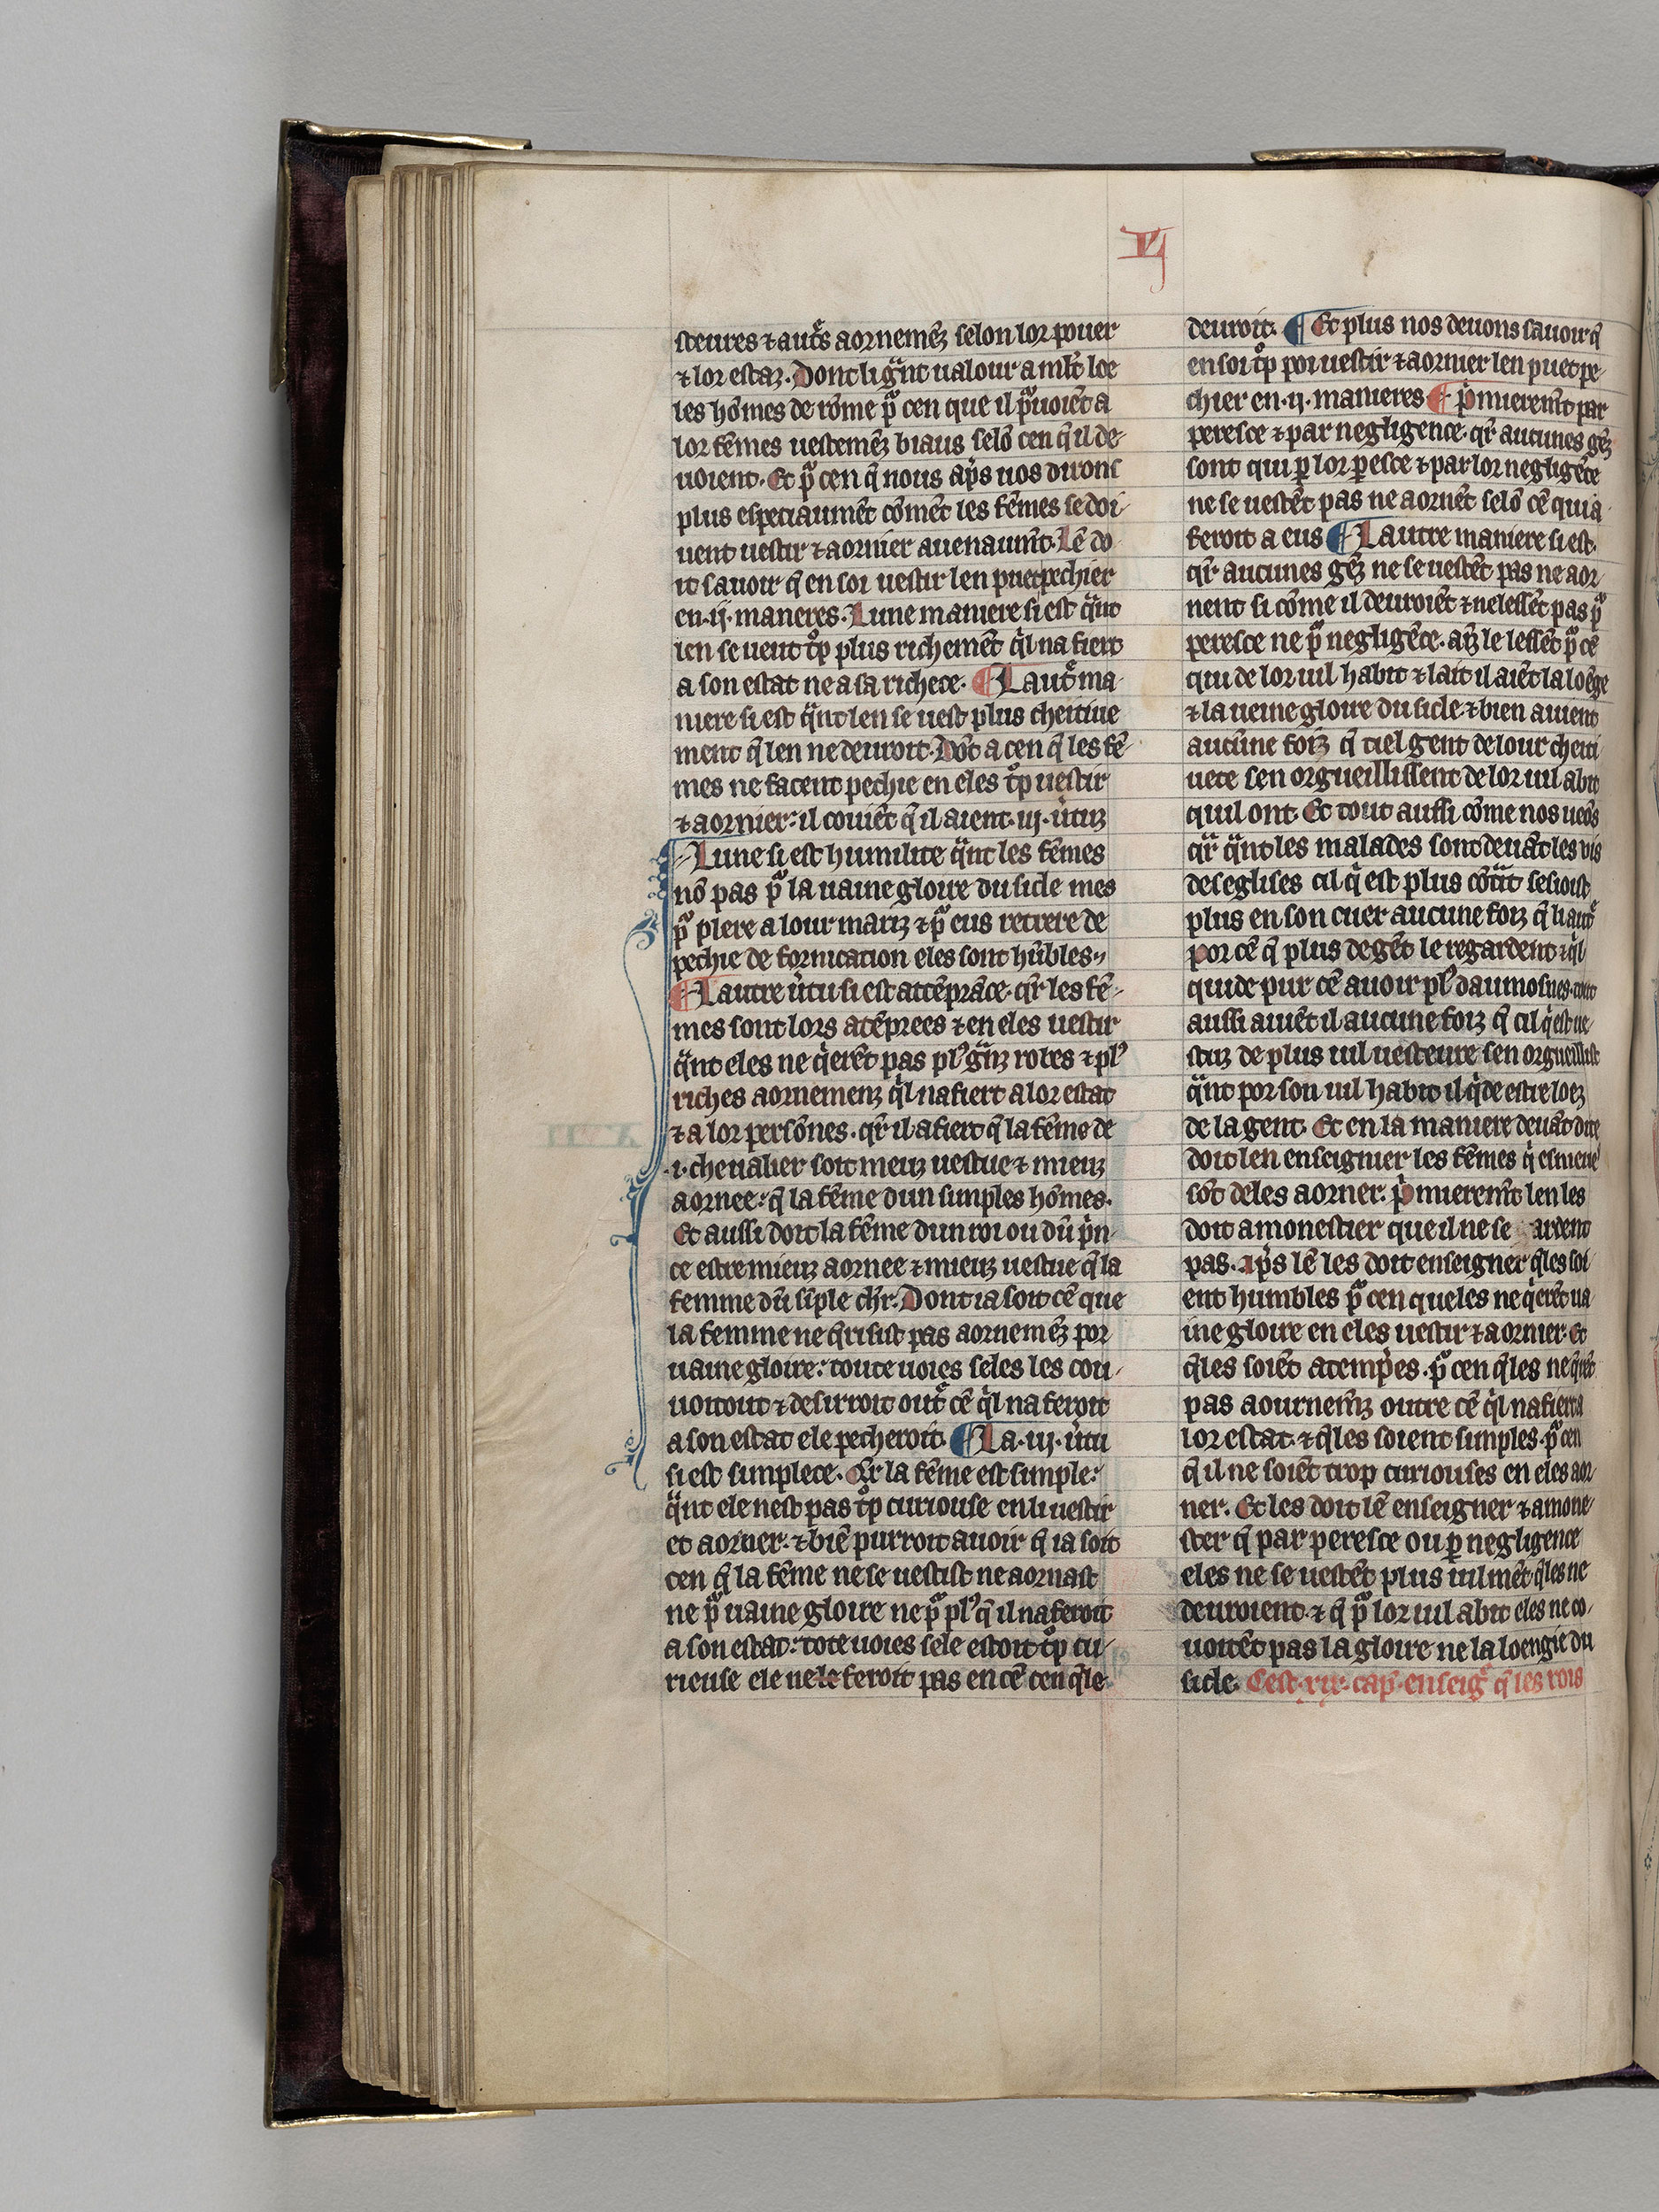 vj
steures ⁊ aut͛s aornemẽz selon lor pouer
⁊ lor estaz. Dont li gͣnt ualour a ml̃t loe
les hõmes de rõme pͦ cen que il pͦuoiẽt a
lor fẽmes uestemẽz biaus selõ cen q̃ il de-
uoient. Et pͦ cen q̃ nous ap̾s uos dirons
plus especiaumẽt cõmẽt les fẽmes se doi-
uent uestir ⁊ aornier auenaumẽt. Lẽ do-
it sauoir q̃ en soi uestir len puet pechier
en .ij. maneres. Lune maniere si est qͣnt
len se uent tͦp plus richemẽt qͥl na fiert
a son estat ne a sa richece. ¶ Lautͤ ma-
niere si est qͣnt len se uest plus cheitiue
ment q̃ len ne deuroit. Dõt a cen q̃ les fẽ-
mes ne facent pechie en eles tͦp uestir
⁊ aornier: il couiẽt q̃ il aient .iij. u̾tuz
Lune si est humilite qͣnt les fẽmes
nõ pas pͦ la uaine gloire du sicle mes
pͦ plere a lour mariz ⁊ pͦ eus retrere de
pechie de fornication eles sont hũbles
¶ Lautre u̾tu si est attẽprãce. qr̃ les fẽ-
mes sont lors atẽprees ⁊ en eles uestir
qͣnt eles ne qͥerẽt pas plꝰ gͣnz robes ⁊ plꝰ
riches aornemenz qͥl nafiert a lor estat
⁊ a lor persõnes. qr̃ il afiert q̃ la fẽme de
.i. cheualier soit meuz uestue ⁊ mieuz
aornee: q̃ la fẽme dun simples hõmes.
Et aussi doit la fẽme dun roi ou dũ pͥn-
ce estre mieuz aornee ⁊ mieuz uestue q̃ la
femme dũ sĩple chr̃. Dont ia soit cẽ que
la femme ne q̃risist pas aornemẽz por
uaine gloire: toute uoies seles les cou-
uoitout ⁊ desirroit outͤ cẽ qͥl naferoit
a son estat ele pecheroit. ¶ La .iij. u̾tu
si est simplece. Qr̃ la fẽme est simple:
qͣnt ele nest pas tͦp curiouse en li uestir
et aorner. ⁊ biẽ purroit auoir q̃ ia soit
cen q̃ la fẽme ne se uestist ne aornast
ne pͦ uaine gloire ne pͦ plꝰ q̃ il naferoit
a son estat: tote uoies sele estoit tͦp cu-
rieuse ele ne le feroit pas en cẽ cen q̃le
deuroit. ¶ Et plus nos deuons sauoir q̃
en soi tͦp por uestir ⁊ aornier len puet pe-
chier en .ij. manieres ¶ pͥmieremẽt par
peresce ⁊ par negligence. qr̃ aucunes gẽz
sont qui ꝑ lor ꝑesce ⁊ par lor negligẽce
ne se uestẽt pas ne aornẽt selõ cẽ qui a-
feroit a eus ¶ Lautre maniere si est.
qr̃ aucunes gẽz ne se uestẽt pas ne aor-
nent si cõme il deuroiẽt ⁊ ne lessẽt pas pͦ
peresce ne pͦ negligẽce. aĩz le lessẽt pͦ cẽ
qui de lor uil habit ⁊ lait il aiẽt la loẽge
⁊ la ueine gloire du sicle. ⁊ bien auient
aucũne foiz q̃ tiel gent de lour cheiti
uete sen orgueillissent de lor uil abit
quil ont. Et tout aussi cõme nos ueõs
qr̃ qͣnt les malades sont deuãt les vis
des eglises cil qͥ est plus cõtͣit sesioist
plus en son cuer aucune foiz q̃ li autͤ
por cẽ q̃ plus de gẽt le regardent ⁊ qͥl
quide pur cẽ auoir plꝰ daumosnes. tout
aussi auiẽt il aucune foiz q̃ cil qͥ est ue-
stuz de plus uil uesteure sen orgueillist
qͣnt por son uil habit il qͥde estre loez
de la gent. Et en la maniere deuãt dite
doit len enseignier les fẽmes
sõt deles aorner. pͥmieremẽt len les
doit amonestier que il ne se
pas. Ap̾s lẽ les doit enseigner q̃les soi-
ent humbles pͦ cen queles ne qͥerẽt ua-
ine gloire en eles uestir ⁊ aornier. Et
q̃les soiẽt atemp̾es. pͦ cen q̃les ne qͥerẽt
pas aournemẽz outre cẽ qͥl nafiert a
lor estat. ⁊ q̃les soient simples. pͦ cen
q̃ il ne soiẽt trop curiouses en eles aor-
ner. Et les doit lẽ enseigner ⁊ amone-
ster q̃ par peresce ou ꝑ negligence
eles ne se uestẽt plus uilmẽt q̃les ne
deuroient. ⁊ q̃ pͦ lor uil abit eles ne co-
uoitẽt pas la gloire ne la loengie du
sicle. Cest .xix. cap̃. enseigͤ q̃ les rois